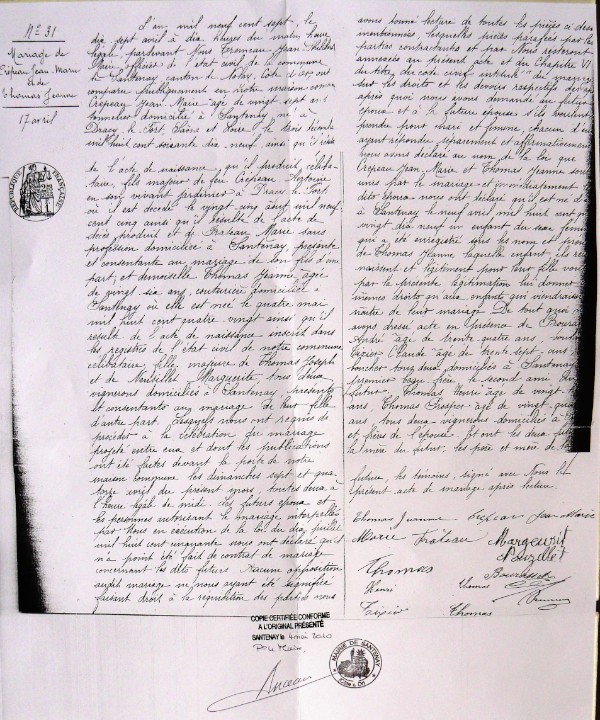 N° 31
Mariage de
Crépeau Jean Marie
et de
Thomas Jeanne
17 avril
L'an mil neuf cent sept, le
dix sept avril à dix heures du matin heure
légale, pardevant Nous Jean
Maire officier de l'état civil de la commune
de Santenay canton de Nolay, Côte d'Or ont
comparu publiquement en notre maison commune
Crépeau Jean Marie âgé de vingt sept ans
tonnelier domicilié à Santenay né à
Dracy le Fort, Saône et Loire le trois
mil huit cent soixante dix neuf, ainsi qu'il résulte
de l'acte de naissance qu'il produit, céliba-
taire, fils majeur de feu Crépeau Antoine
en son vivant jardinier à Dracy le Fort
où il est décédé le vingt cinq août mil neuf
cent cinq ainsi qu'il résulte de l'acte de
décès produit et de Frateau Marie sans
profession domiciliée à Santenay, présente
et consentante au mariage de son fils d'une
part, et demoiselle Thomas Jeanne âgée
de vingt six ans, couturière domiciliée à
Santenay où elle est née le quatre mai
mil huit cent quatre vingt ainsi qu'il
résulte de l'acte de naissance inscrit dans
les registres de l'état civil de notre commune
célibataire, fille majeure de Thomas Joseph
et de Marguerite, tous deux
vignerons domiciliés à Santenay présents
et consentants au mariage de leur fille
d'autre part. Lesquels nous ont requis de
procéder à la célébration du mariage
projeté entre eux et dont les publications
ont été faites devant la porte de notre
maison commune les dimanches sept et qua-
torze avril du présent mois, toutes deux à
l'heure légale de midi. Les futurs époux et
les personnes autorisant le mariage interpellés
par Nous en exécution de la loi du dix juillet
mil huit cent cinquante nous ont déclaré qu'il
n'a point été fait de contrat de mariage
concernant les dits futurs. Aucune opposition
audit mariage ne nous ayant été signifiée
faisant droit à la réquisition des parties nous
avons donné lecture de toutes les pièces ci dessus
mentionnées, lesquelles pièces parafées par les
parties contractantes et par Nous resteront
annexées au présent acte et du Chapitre VI
du titre du code civil intitulé du mariage
sur les droits et les devoirs respectifs des époux
après quoi nous avons demandé au futur
époux et à la future épouse s'ils veulent
prendre pour mari et femme, chacun d'eux
ayant répondu séparément et affirmativement
Nous avons déclaré au nom de la loi que
Crépeau Jean Marie et Thomas Jeanne sont
unis par le mariage et immédiatement les
dits époux nous ont déclaré qu'il est né d'eux
à Santenay le neuf avril mil huit cent quatre
vingt dix neuf un enfant du sexe féminin
qui a été enregistré sous les nom et prénom
de Thomas Jeanne laquelle enfant ils recon-
naissent et légitiment pour leur fille voulant
par la présente légitimation lui donner les
mêmes droits qu'aux enfants qui viendraient à
naître de leur mariage. De tout quoi nous
avons dressé acte en présence de
André âgé de trente quatre ans,
Texier Claude âgé de trente sept ans
boucher tous deux domiciliés à Santenay
premier beau frère le second ami du
futur, Thomas Henri âgé de vingt
ans, Thomas Prosper âgé de vingt quatre
ans tous deux vignerons domiciliés à
et frères de l'épouse. Et ont les deux futurs
la mère du futur, les père et mère de la
future, les témoins, signé avec Nous le
présent acte de mariage après lecture.
Thomas Jeanne Crepeau Jean Marie
Marie Frateau Marguerite
Thomas
Henri Thomas
Texier Thomas
COPIE CERTIFIÉE CONFORME
A L'ORIGINAL PRÉSENTÉ
SANTENAY le 4 mai 2010
P/Le Maire,
MAIRIE DE SANTENAY
Côte d'Or